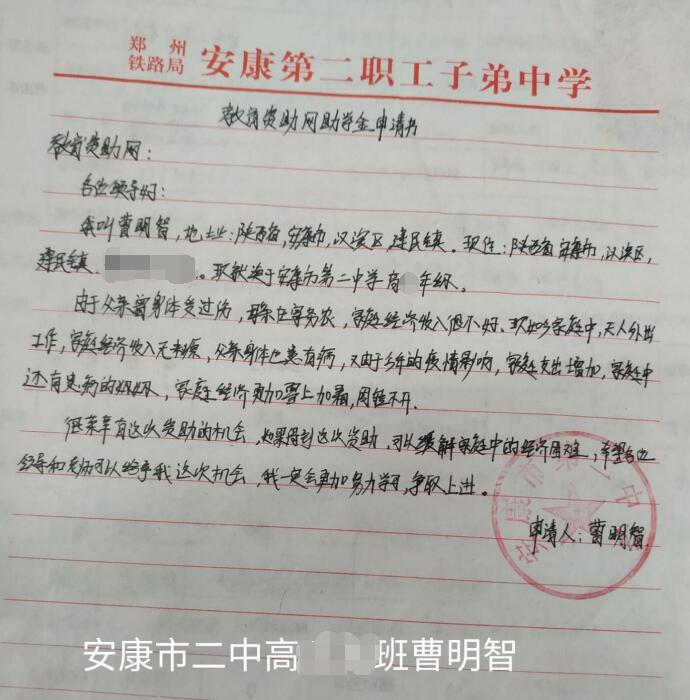 郑州
铁路局 安康第二职工子弟中学
教育资助网助学金申请书
教育资助网：
各位领导好：
我叫曹明智，地址：陕西省，安康市，汉滨区，建民镇。现住：陕西省，安康市，汉滨区，
建民镇。现就读于安康市第二中学高年级。
由于父亲曾身体受过伤，母亲在家务农，家庭经济收入很不好。现如今家庭中，无人外出
工作，家庭经济收入无来源，父亲身体也患有病，又由于今年的疫情影响，家庭支出增加，家庭中
还有患病的奶奶，家庭经济更加雪上加霜，周转不开。
很荣幸有这次资助的机会，如果得到这次资助，可以缓解家庭中的经济困难，希望各位
领导和老师可以给予我这次机会，我一定会更加努力学习，争取上进。
安康市第二中
申请人：曹明智
安康市二中高 班曹明智